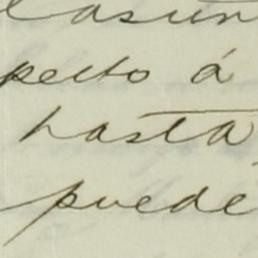 pecto á
hasta
puede